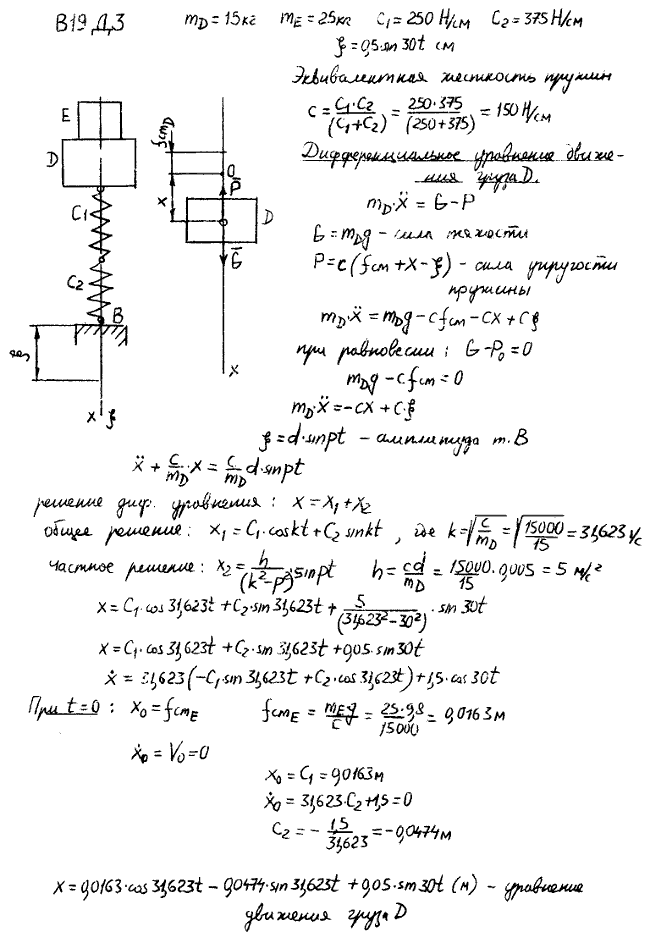 В19 Д.3 m_D = 15 кг m_E = 25 кг C₁ = 250 Н/см C₂ = 375 Н/см
ξ = 0,5·sin 30t см
Эквивалентная жесткость пружин
c = C₁·C₂/(C₁+C₂) = 250·375/(250+375) = 150 Н/см
Дифференциальное уравнение движе-
ния груза D.
m_D·ẍ = G - P
G = m_D g - сила тяжести
P = c(fст + x - ξ) - сила упругости
пружины
m_D·ẍ = m_D g - cfст - cx + cξ
при равновесии: G - P₀ = 0
m_D g - cfст = 0
m_D·ẍ = -cx + c·ξ
ξ = d·sin pt - амплитуда т. В
E
D
C₁
C₂
B
x ξ
fстD
O
P
x
D
G
x
ẍ + c/m_D·x = c/m_D d·sin pt
решение диф. уравнения: x = x₁ + x₂
общее решение: x₁ = C₁·cos kt + C₂ sin kt, где k = √(c/m_D) = √(15000/15) = 31,623 1/с
частное решение: x₂ = h/(k²-p²)·sin pt h = cd/m_D = 15000/15·0,005 = 5 м/с²
x = C₁·cos 31,623t + C₂·sin 31,623t + 5/(31,623²-30²)·sin 30t
x = C₁·cos 31,623t + C₂·sin 31,623t + 0,05·sin 30t
ẋ = 31,623(-C₁·sin 31,623t + C₂·cos 31,623t) + 1,5·cos 30t
При t=0: x₀ = fстE fстE = m_E g/c = 25·9,8/15000 = 0,0163 м
ẋ₀ = V₀ = 0
x₀ = C₁ = 0,0163 м
ẋ₀ = 31,623·C₂ + 1,5 = 0
C₂ = - 1,5/31,623 = -0,0474 м
x = 0,0163·cos 31,623t - 0,0474·sin 31,623t + 0,05·sin 30t (м) - уравнение
движения груза D